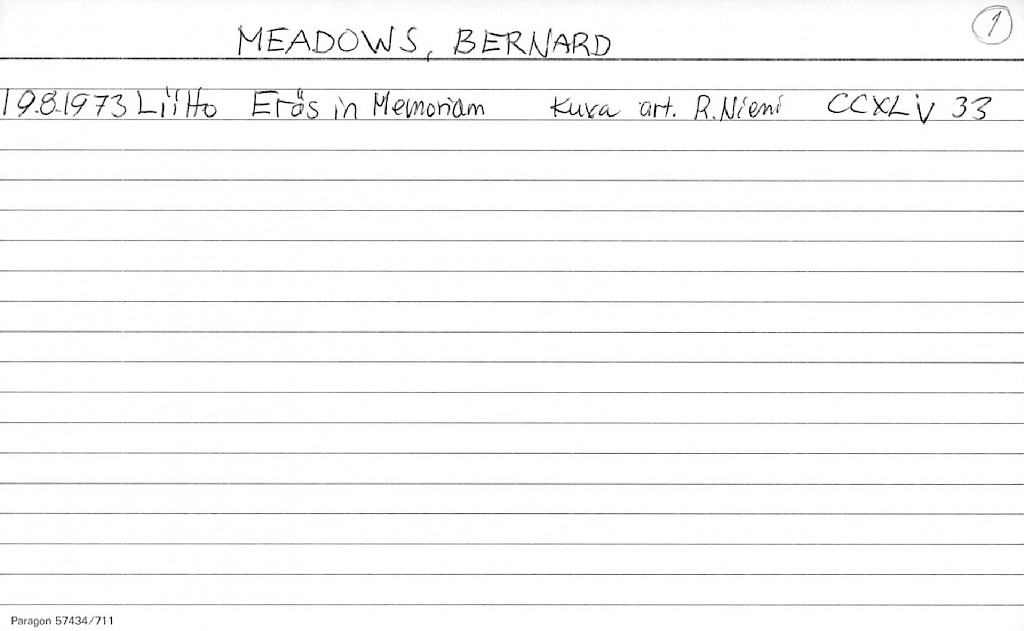 MEADOWS, BERNARD
1
19.8.1973 Liitto Eräs in Memoriam Kuva art. R. Niemi CCXLIV 33
Paragon 57434/711